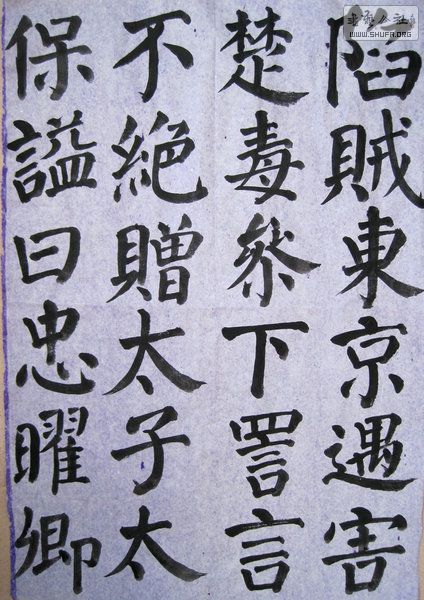 陷賊東京遇害
楚毒參下詈言
不絕贈太子太
保謚曰忠曜卿
WWW.SHUFA.ORG